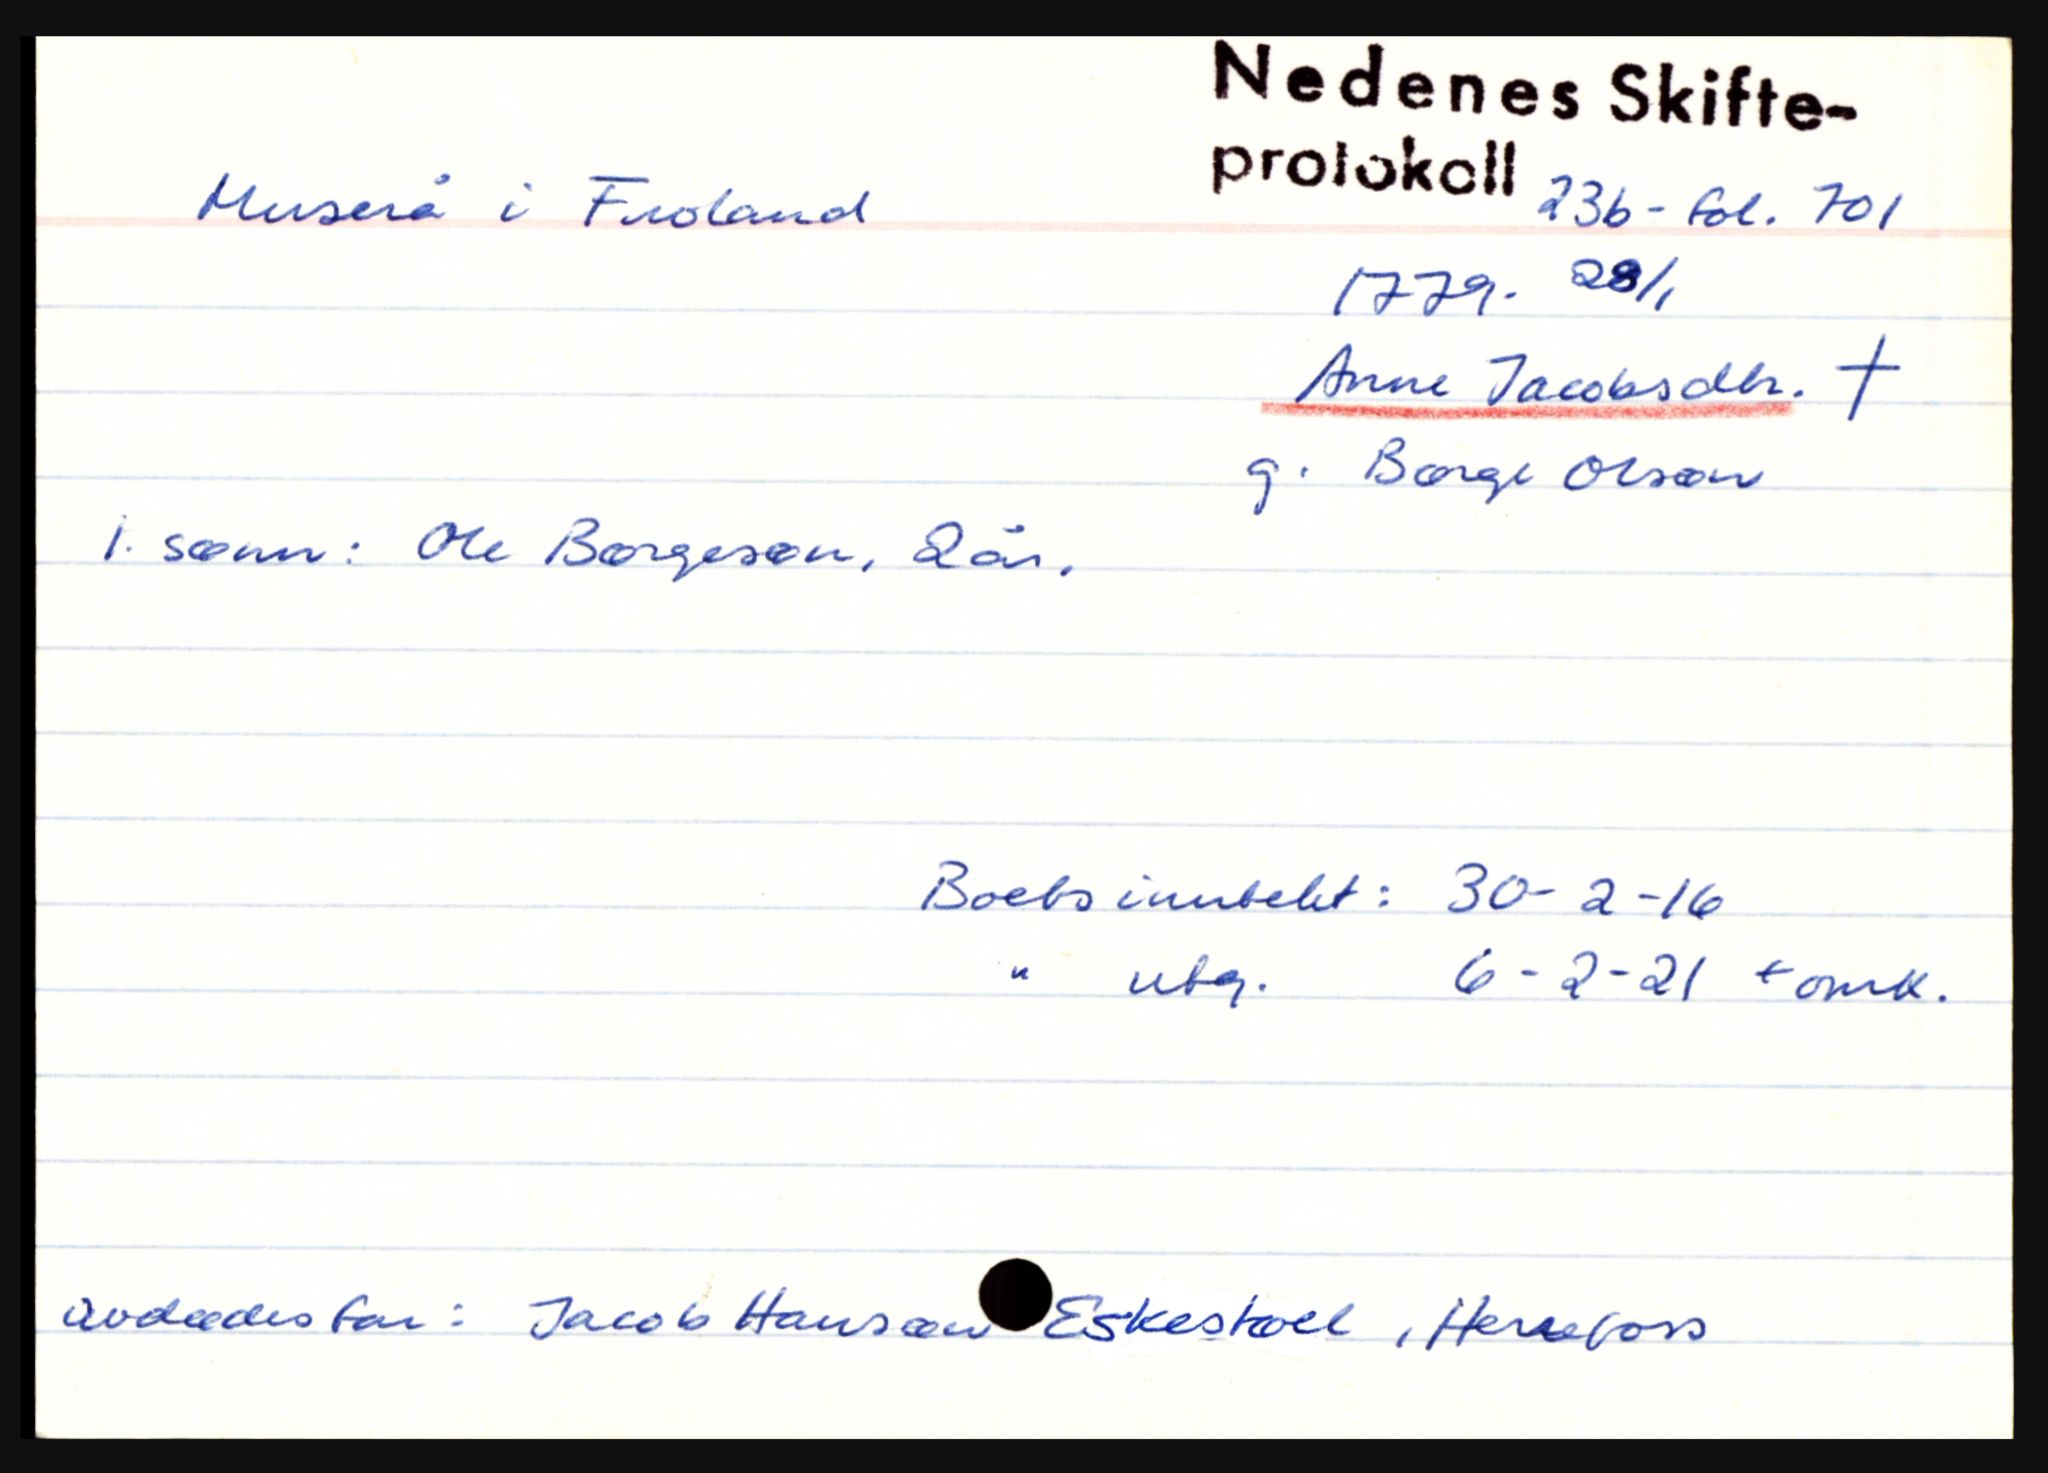 Nedenes Skifte-
protokoll 23b - fol. 701
Muserå i Froland
1779. 28/1
Anne Jacobsdtr. †
g. Børge Olsøn
1. sønn: Ole Børgesøn, 2 år.
Boets inntekt: 30-2-16
" utg. 6-2-21 + omk.
avdødes far: Jacob Hansøn Eskestøel, Herefoss